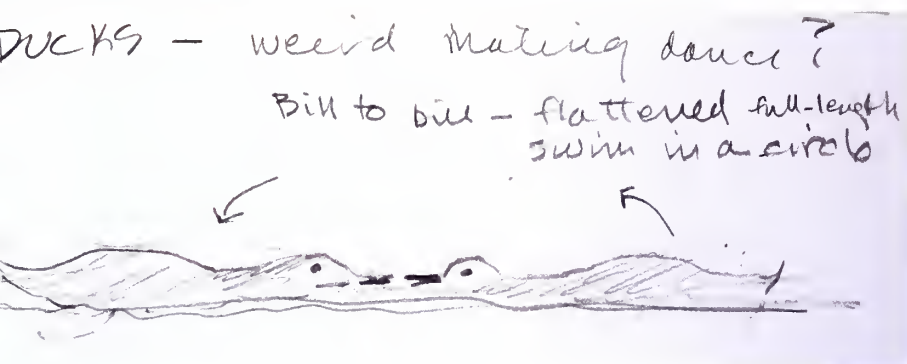 DUCKS — weird mating dance?
Bill to bill — flattened full-length
swim in a circle